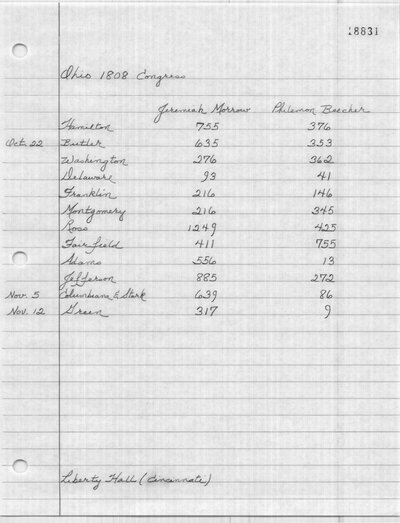 18831
Ohio 1808 Congress
Jeremiah Morrow Philemon Beecher
Hamilton 755 376
Oct. 22 Butler 635 353
Washington 276 362
Delaware 93 41
Franklin 216 146
Montgomery 216 345
Ross 1249 425
Fairfield 411 755
Adams 556 13
Jefferson 885 272
Nov. 5 Columbiana & Stark 639 86
Nov. 12 Green 317 9
Liberty Hall (Cincinnati)